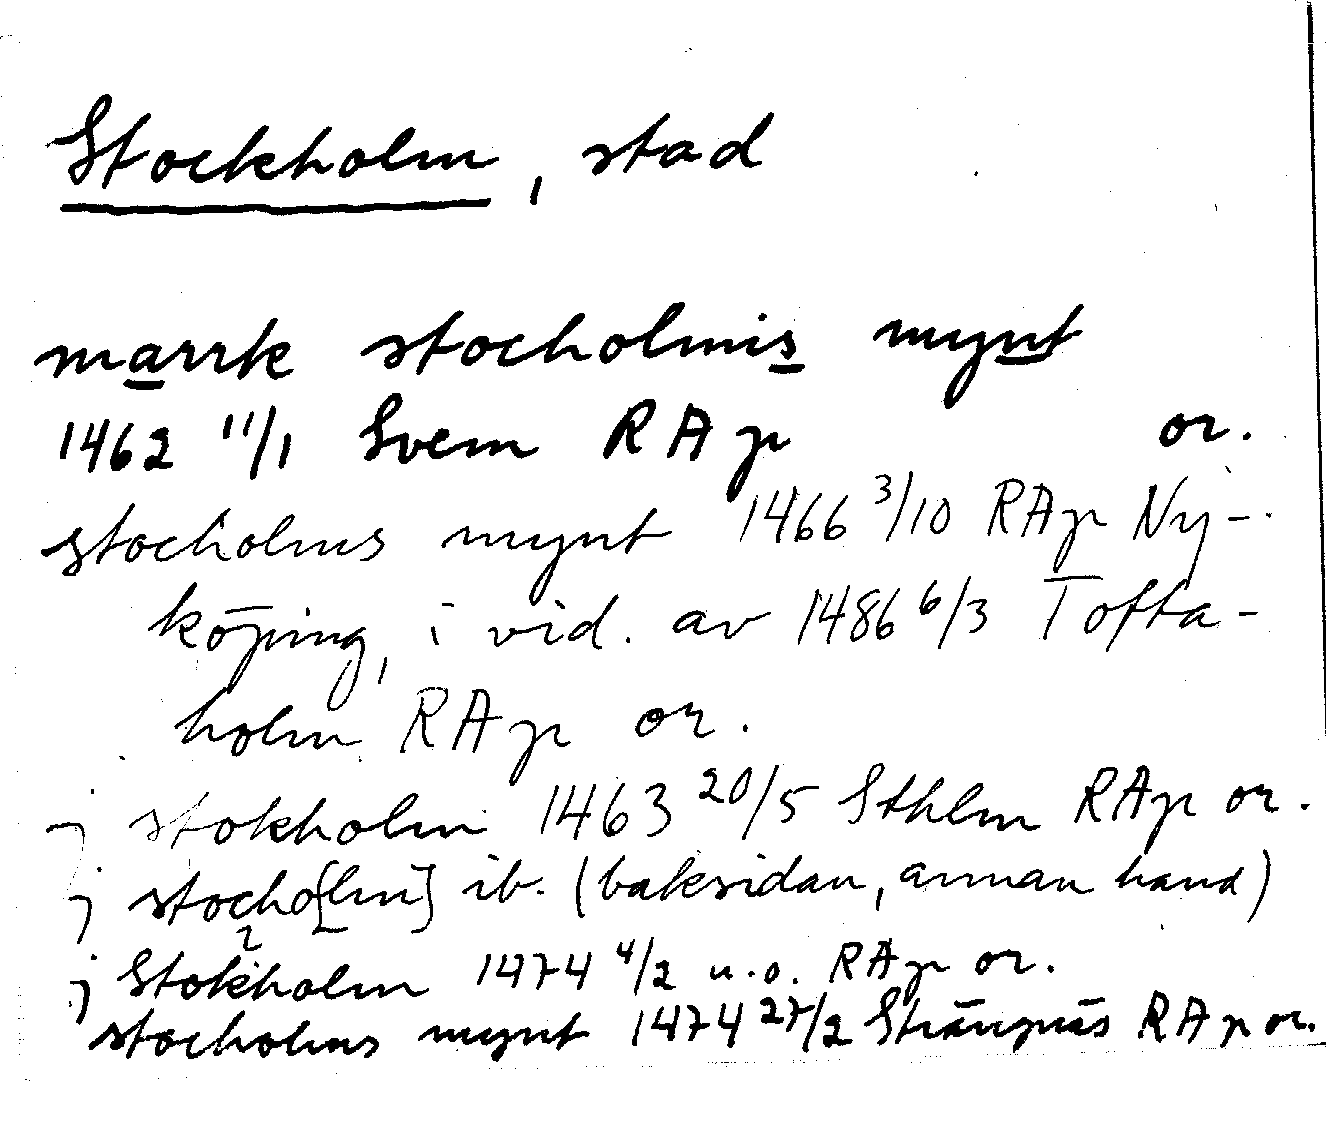 Stockholm, stad
marrk stocholmis mynt
1462 11/1 Svem RAp or.
stocholms mynt 1466 3/10 RAp Ny-
köping, i vid. av 1486 6/3 Tofta-
holm RAp or.
j stokholm 1463 20/5 Sthlm RAp or.
j stocho[lm] ib. (baksidan, annan hand)
j Stokholm 1474 4/2 u.o. RAp or.
stocholms mynt 1474 27/2 Strängnäs RAp or.